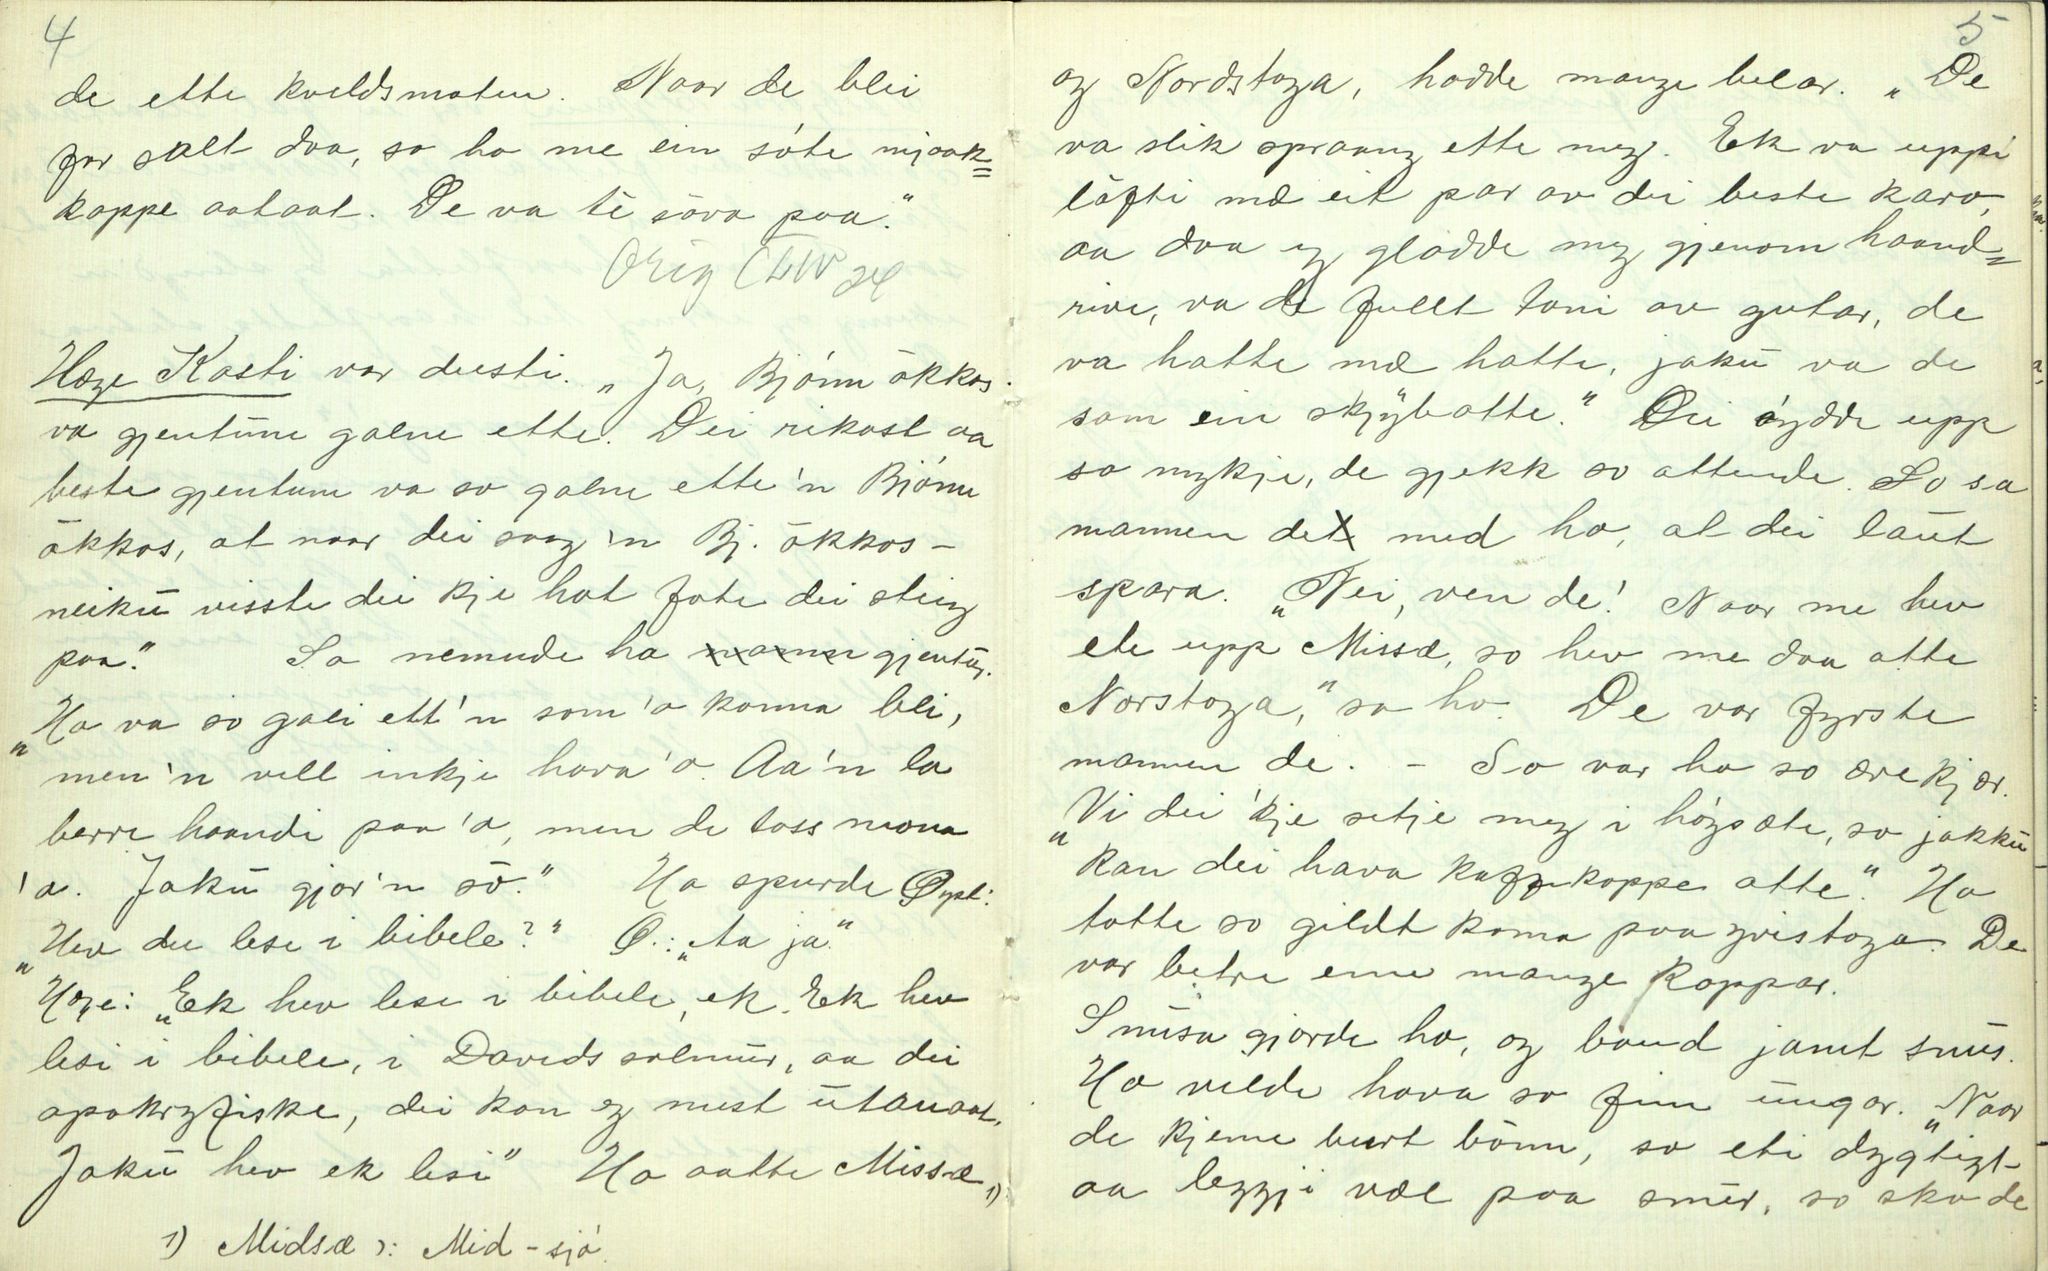 4
de ette kveldsmaten. Naar de blei
for salt daa, so ha me ein sóte mjaak=
koppe aataat. De va te sòva paa."
Orig
Hæge Kasti var dusti. "Ja, Bjónn ōkkos
va gjentūne galne ette. Dei rikast aa
beste gjentune va so galne ette'n Bjónn
ōkkos, at naar dei saag'n Bj. ōkkos –
neikū visste dei kje hot fote dei steig
paa." Sa nemnde ho gjentūg.
"Ho va so gali ett'n som 'o kunna bli,
men'n vill inkje hava'o. Aa'n la
berre haandi paa'o, men de toss mona
'o. Jakū gjor'n sō." Ho spurde Øyst:
"Hev du lesi i bibele?" Ø.: "Aa ja."
Hæge: "Ek hev lesi i bibele, ek. Ek hev
lesi i bibele, i Davids salmūr, aa dei
apokryfiske, dei kan eg mest ūtanaat.
Jakū hev ek lesi" Ho aatte Missæ 1)
1) Midsæ ɔ: Mid-sjó
5
og Nordstoga, hadde mange belar. "De
va slik spraang ette meg. Ek va uppi
lofti mæ eit par av dei beste karo,
aa daa eg gladde meg gjenom haand=
rive, va de fullt tuni av gutar, de
va hatte mæ hatte, jakū va de
som ein skjýbatte." Dei óydde upp
so mykje, de gjekk so attende. So sa
mannen det med ho, at dei laut
spara. "Nei, ven de! Naar me hev
ete upp Missæ, so hev me daa atte
Norstoga," sa ho. De var fyrste
mannen de. – So var ho so ærekjær.
"Vi dei 'kje setje meg i hógsæte, so jakkū
kan dei hava kaffikoppe atte." Ho
totte so gildt koma paa gvistoga. De
var betre enn mange koppar.
Snūsa gjorde ho, og baud jamt snūs.
Ho vilde hava so finn ungar. "Naar
de kjeme burt bōnn, so eti dygtigt
aa leggji væl paa smér, so ska de